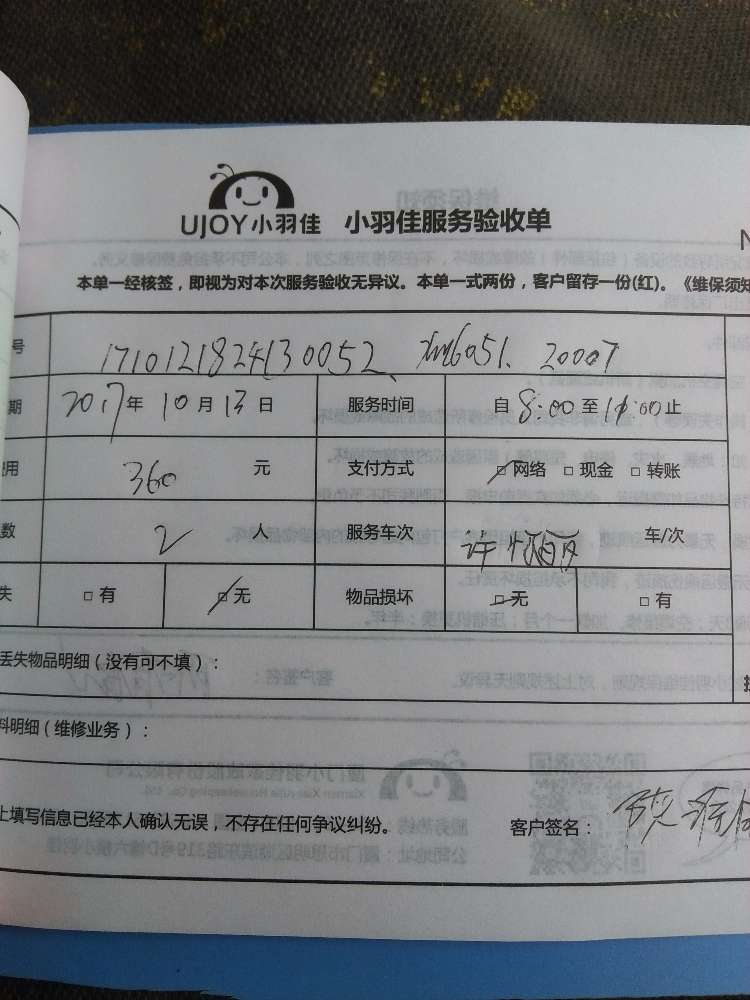 UJOY小羽佳 小羽佳服务验收单
本单一经核签，即视为对本次服务验收无异议。本单一式两份，客户留存一份(红)。《维保须知
号 1710121824130052、 6051. 2000T
期 2017年10月13日 服务时间 自8:00至11:00止
用 360 元 支付方式 □网络 □现金 □转账
数 2 人 服务车次 车/次
失 □有 □无 物品损坏 □无 □有
丢失物品明细（没有可不填）：
料明细（维修业务）：
上填写信息已经本人确认无误，不存在任何争议纠纷。 客户签名：